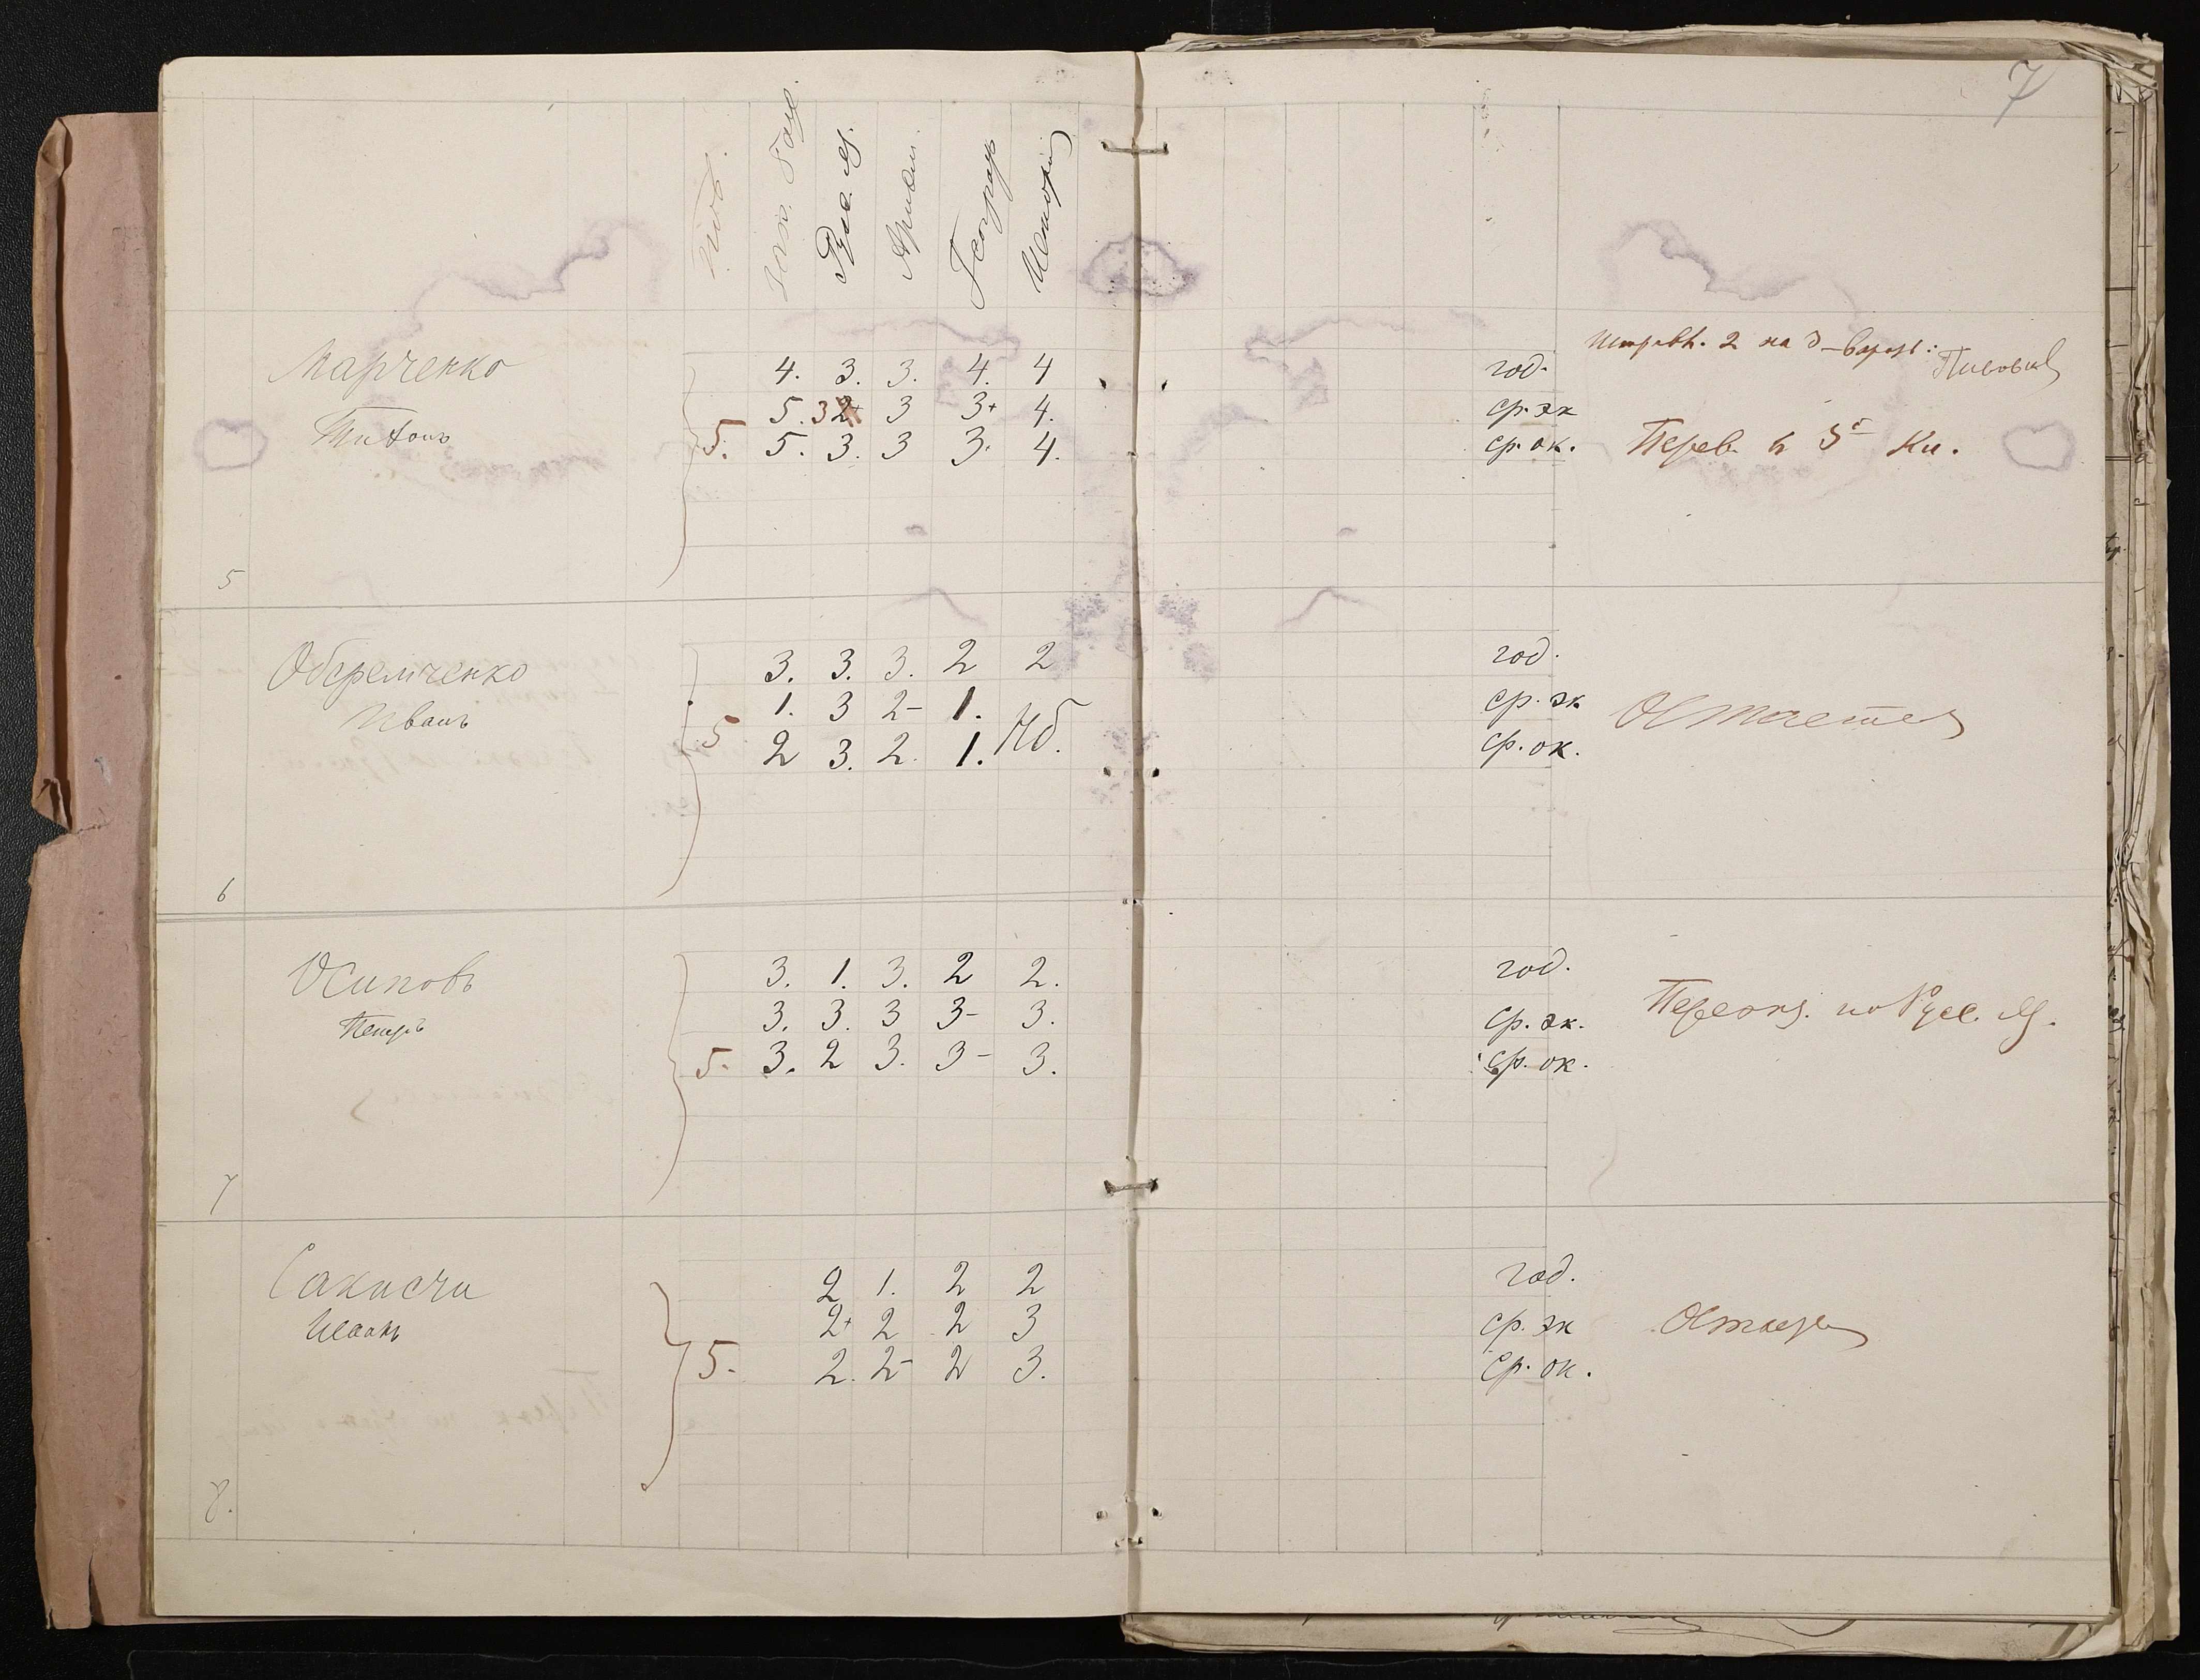 7
Пов.
Зак. Бож.
Русс. яз.
Ариѳм.
Географ
Истори
Марченко
Тихонъ
5
5.
4. 3. 3. 4. 4 год.
5. 3 2+ 3 3+ 4. ср. эк
5. 3. 3 3. 4. ср. ок.
Исправл. 2 на 3
Перев. в 3й Кл.
Оберемченко
Иванъ
6
5
3. 3. 3. 2 2 год.
1. 3 2- 1. ср. эк
2 3. 2. 1. Нб. ср. ок.
Остается
Осиповъ
Петръ
7
5.
3. 1. 3. 2 2. год.
3. 3. 3 3- 3. ср. эк.
3. 2 3. 3- 3. ср. ок.
Переэкз. по Русс. яз.
Иванъ
8.
5.
2 1. 2 2 год.
2+ 2 2 3 ср. эк
2. 2- 2 3. ср. ок.